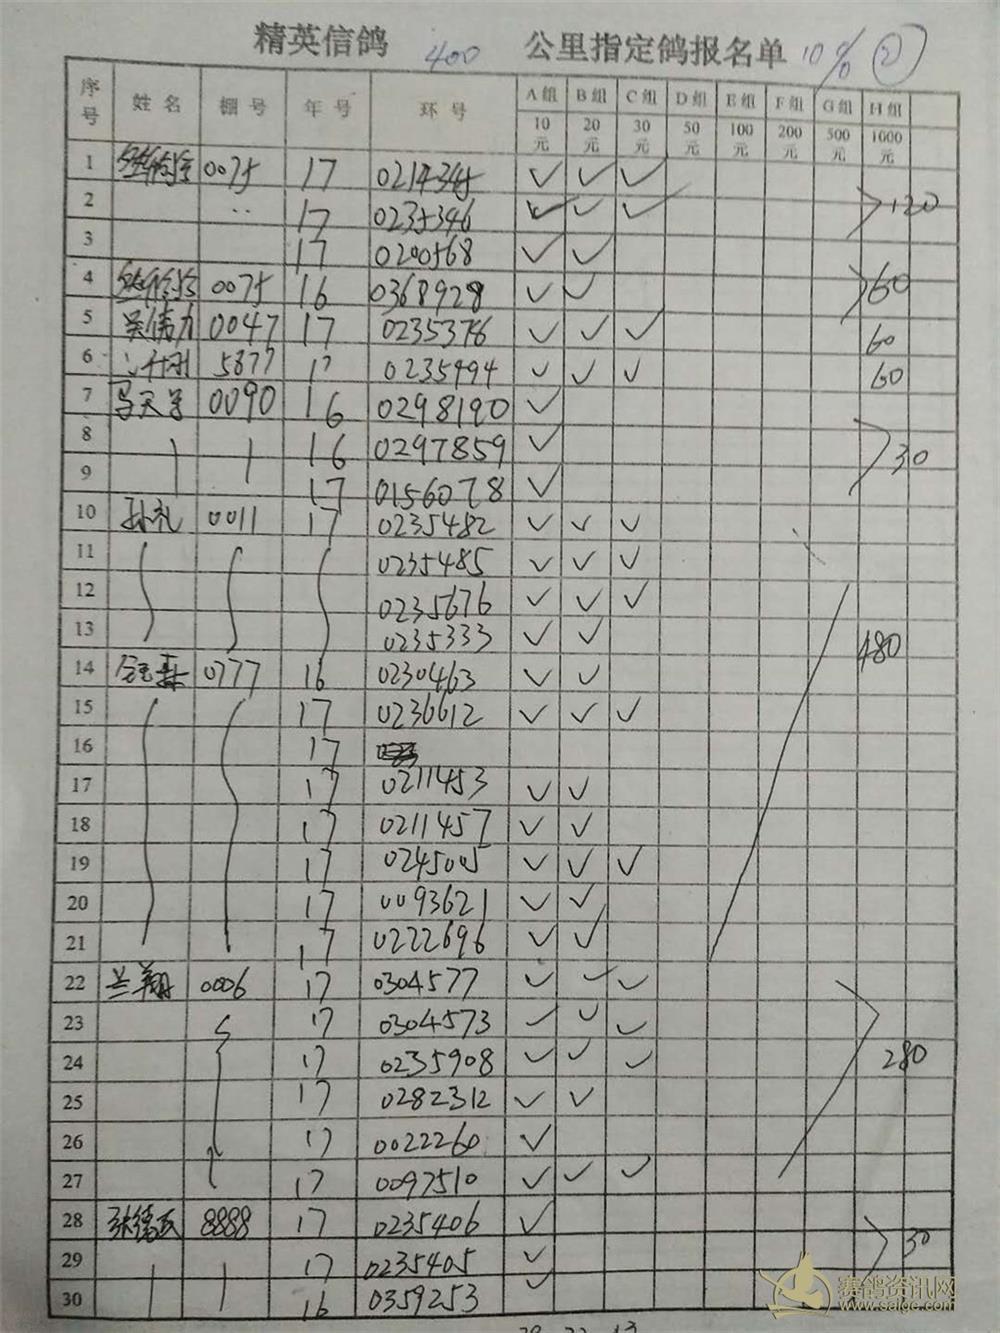 精英信鸽 400 公里指定鸽报名单 10% ②
序号 姓名 棚号 年号 环号 A组 B组 C组 D组 E组 F组 G组 H组
10元 20元 30元 50元 100元 200元 500元 1000元
1 0075 17 0214345 ✓ ✓ ✓
2 17 0235346 ✓ ✓ ✓ 120
3 17 0200568 ✓ ✓
4 0075 16 0368928 ✓ ✓ 60
5 吴伟力 0047 17 0235376 ✓ ✓ ✓ 60
6 5877 17 0235494 ✓ ✓ ✓ 60
7 0090 16 0298190 ✓
8 16 0297859 ✓ 30
9 17 0156078 ✓
10 孙礼 0011 17 0235482 ✓ ✓ ✓
11 0235485 ✓ ✓ ✓
12 0235676 ✓ ✓ ✓
13 0235333 ✓ ✓ 480
14 0777 16 0230463 ✓ ✓
15 17 0230612 ✓ ✓ ✓
16 17
17 17 0211453 ✓ ✓
18 17 0211457 ✓ ✓
19 17 0245005 ✓ ✓ ✓
20 17 0093621 ✓ ✓
21 17 0222696 ✓ ✓
22 兰翔 0006 17 0304577 ✓ ✓ ✓
23 17 0304573 ✓ ✓ ✓
24 17 0235908 ✓ ✓ ✓ 280
25 17 0282312 ✓ ✓
26 17 0022260 ✓
27 17 0097510 ✓ ✓ ✓
28 8888 17 0235406 ✓
29 17 0235405 ✓ 30
30 16 0359253 ✓
赛鸽资讯网
www.saige.com